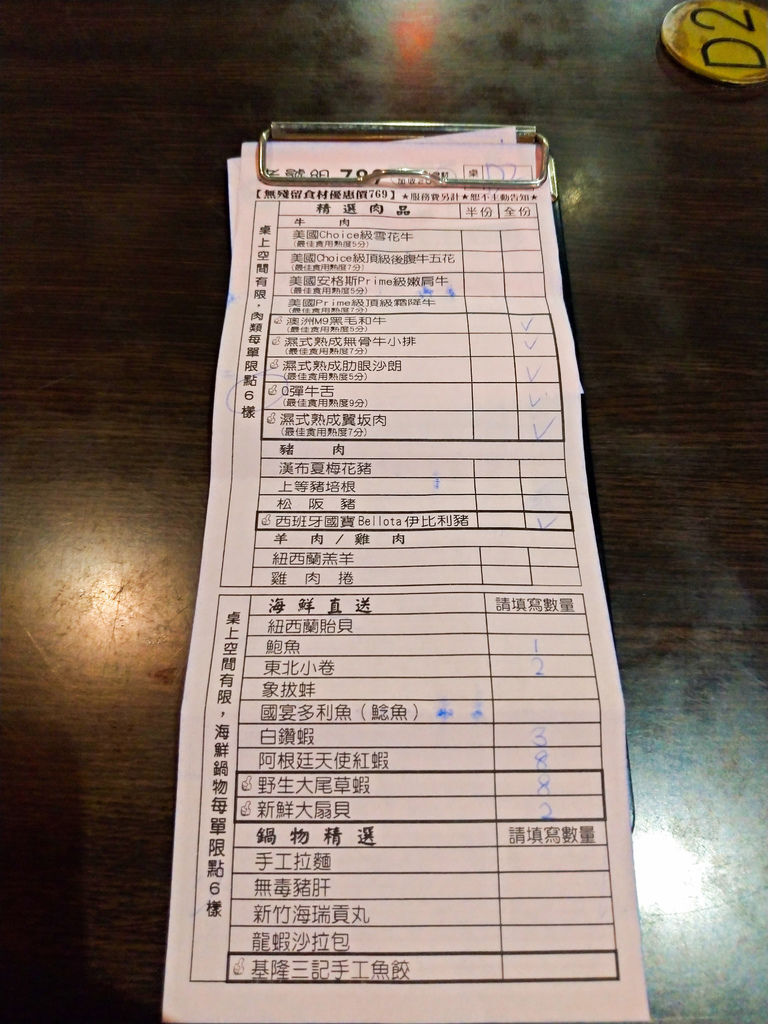 D2
797
桌 D2
【無殘留食材優惠價769】★服務費另計★恕不主動告知★
精選肉品 半份 全份
桌上空間有限,肉類每單限點6樣
牛 肉
美國Choice級雪花牛
(最佳食用熟度5分)
美國Choice級頂級後腹牛五花
(最佳食用熟度7分)
美國安格斯Prime級嫩肩牛
(最佳食用熟度5分)
美國Prime級頂級霜降牛
(最佳食用熟度7分)
澳洲M9黑毛和牛 ✓
(最佳食用熟度5分)
濕式熟成無骨牛小排 ✓
(最佳食用熟度7分)
濕式熟成肋眼沙朗 ✓
(最佳食用熟度5分)
Q彈牛舌 ✓
(最佳食用熟度9分)
濕式熟成翼坂肉 ✓
(最佳食用熟度7分)
豬 肉
漢布夏梅花豬
上等豬培根
松 阪 豬
西班牙國寶Bellota伊比利豬 ✓
羊 肉 / 雞 肉
紐西蘭羔羊
雞 肉 捲
桌上空間有限,海鮮鍋物每單限點6樣
海鮮直送 請填寫數量
紐西蘭貽貝
鮑魚 1
東北小卷 2
象拔蚌
國宴多利魚(鯰魚)
白鑽蝦 3
阿根廷天使紅蝦 8
野生大尾草蝦 8
新鮮大扇貝 2
鍋物精選 請填寫數量
手工拉麵
無毒豬肝
新竹海瑞貢丸
龍蝦沙拉包
基隆三記手工魚餃